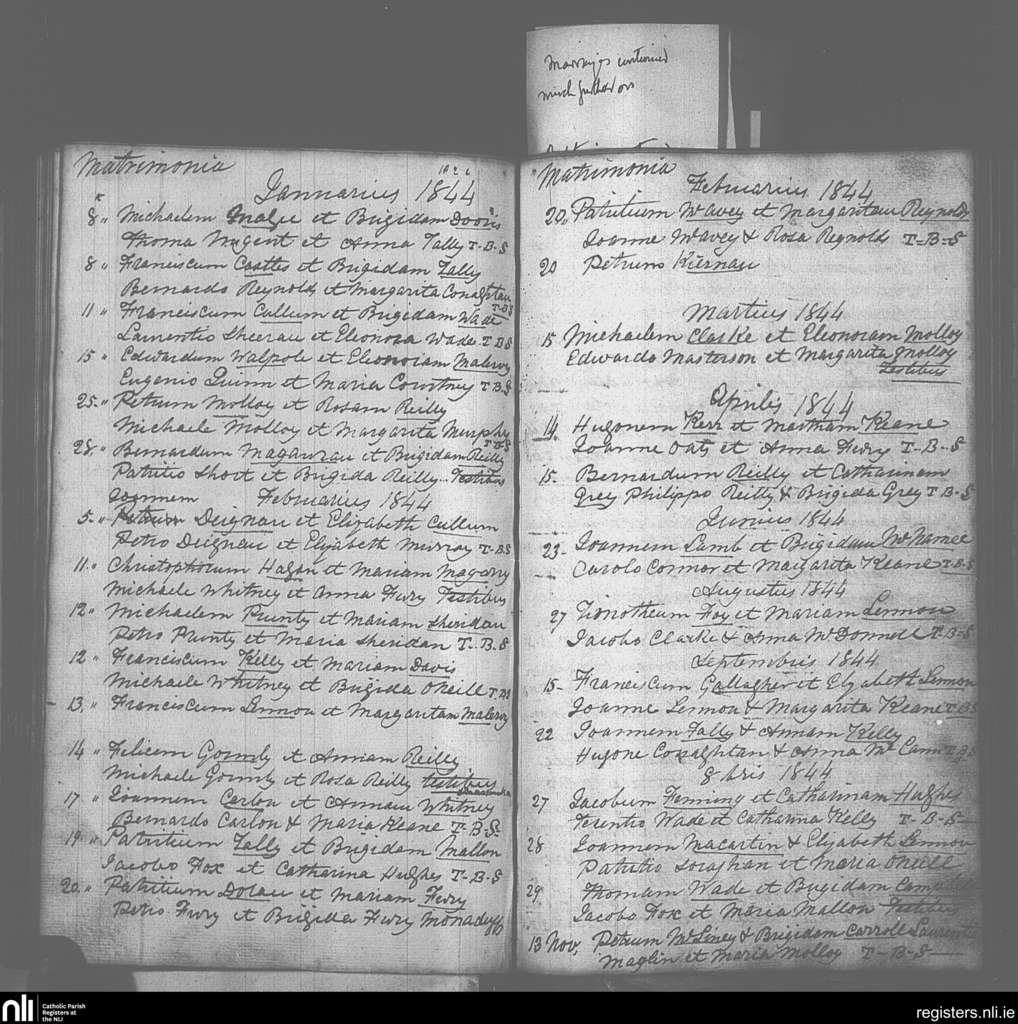 Marriages continued
much further on
Matrimonia
Januarius 1844
8 " Michaelem et Brigidam
Thoma Nugent et Anna Tally T-B-S
8 " Franciscum Castles et Brigidam Tally
Bernardo Reynolds et Margarita Conaghtan
T-B-S
11 " Franciscum Cullum et Brigidam Wade
Laurentio Sheeran et Eleonora Wade T B S
15 " Edwardum Walpole et Eleonoram
Eugenio Quinn et Maria Courtney T-B-S
25 " Petrum Molloy et Rosam Reilly
Michaele Molloy et Margarita Murphy
T-B-S
28 " Bernardum Magaurau et Brigidam Reilly
Patritio Short et Brigida Reilly Testibus
Joannem Februarius 1844
5 " Petrum Deignau et Elizabeth Cullum
Petro Deignau et Elizabeth Murray T-B-S
11 " Christophorum Hagan et Mariam
Michaele Whitney et Anna Fury Testibus
12 " Michaelem Prunty et Mariam Sheridan
Petro Prunty et Maria Sheridan T-B-S
12 " Franciscum Kelly et Mariam Davis
Michaele Whitney et Brigida ONeill T-B-S
13 " Franciscum Lennon et Margaritam
14 " Felicem et Annam Reilly
Michaele et Rosa Reilly Testibus
17 " Joannem Carlou et Annam Whitney
Bernardo Carlon & Maria Keane T-B-S-
19 " Patritium Tally et Brigidam Mallon
Jacobo Fox et Catharina Hughes T-B-S
20 " Patritium Dolau et Mariam Fury
Petro Fury et Brigida Fury
Matrimonia
Februarius 1844
20 " Patritium McAvey et Margaritam Reynolds
Joanne McAvey & Rosa Reynolds T-B-S
20 Petrum Kiernau
Martius 1844
15 Michaelem Clarke et Eleonoram Molloy
Edwardo Masterson et Margarita Molloy
Testibus
Aprilis 1844
14. Hugonem Kerr et Martham Keane
Joanne Oats et Anna Fury T-B-S
15. Bernardum Reilly et Catharinam
Grey Philippo Reilly & Brigida Grey T-B-S
Junius 1844
23- Joannem Lamb et Brigidam McNamee
Carolo Connor et Margarita Keane T-B-S
Augustus 1844
27 Timotheum Fox et Mariam Lennon
Jacobo Clarke & Anna McDonnell T-B-S
Septembris 1844
15- Franciscum Gallagher et Elyabeth Lennon
Joanne Lennon & Margarita Keane T-B-S
22 Joannem Tally & Annam Kelly
Hugone Conaghtan & Anna McCann T-B-S
8 bris 1844
27 Jacobum Fleming et Catharinam Hughes
Terentio Wade et Catharina Kelly T-B-S
28 Joannem Macartin & Elyabeth Lennon
Patritio Soraghan et Maria ONeill
29 Thomam Wade et Brigidam Campbell
Jacobo Fox et Maria Mallon Testibus
13 Nov. Petrum & Brigidam Carroll Laurentio
Maglin et Maria Molloy T-B-S
nli
Catholic Parish
Registers at
the NLI
registers.nli.ie